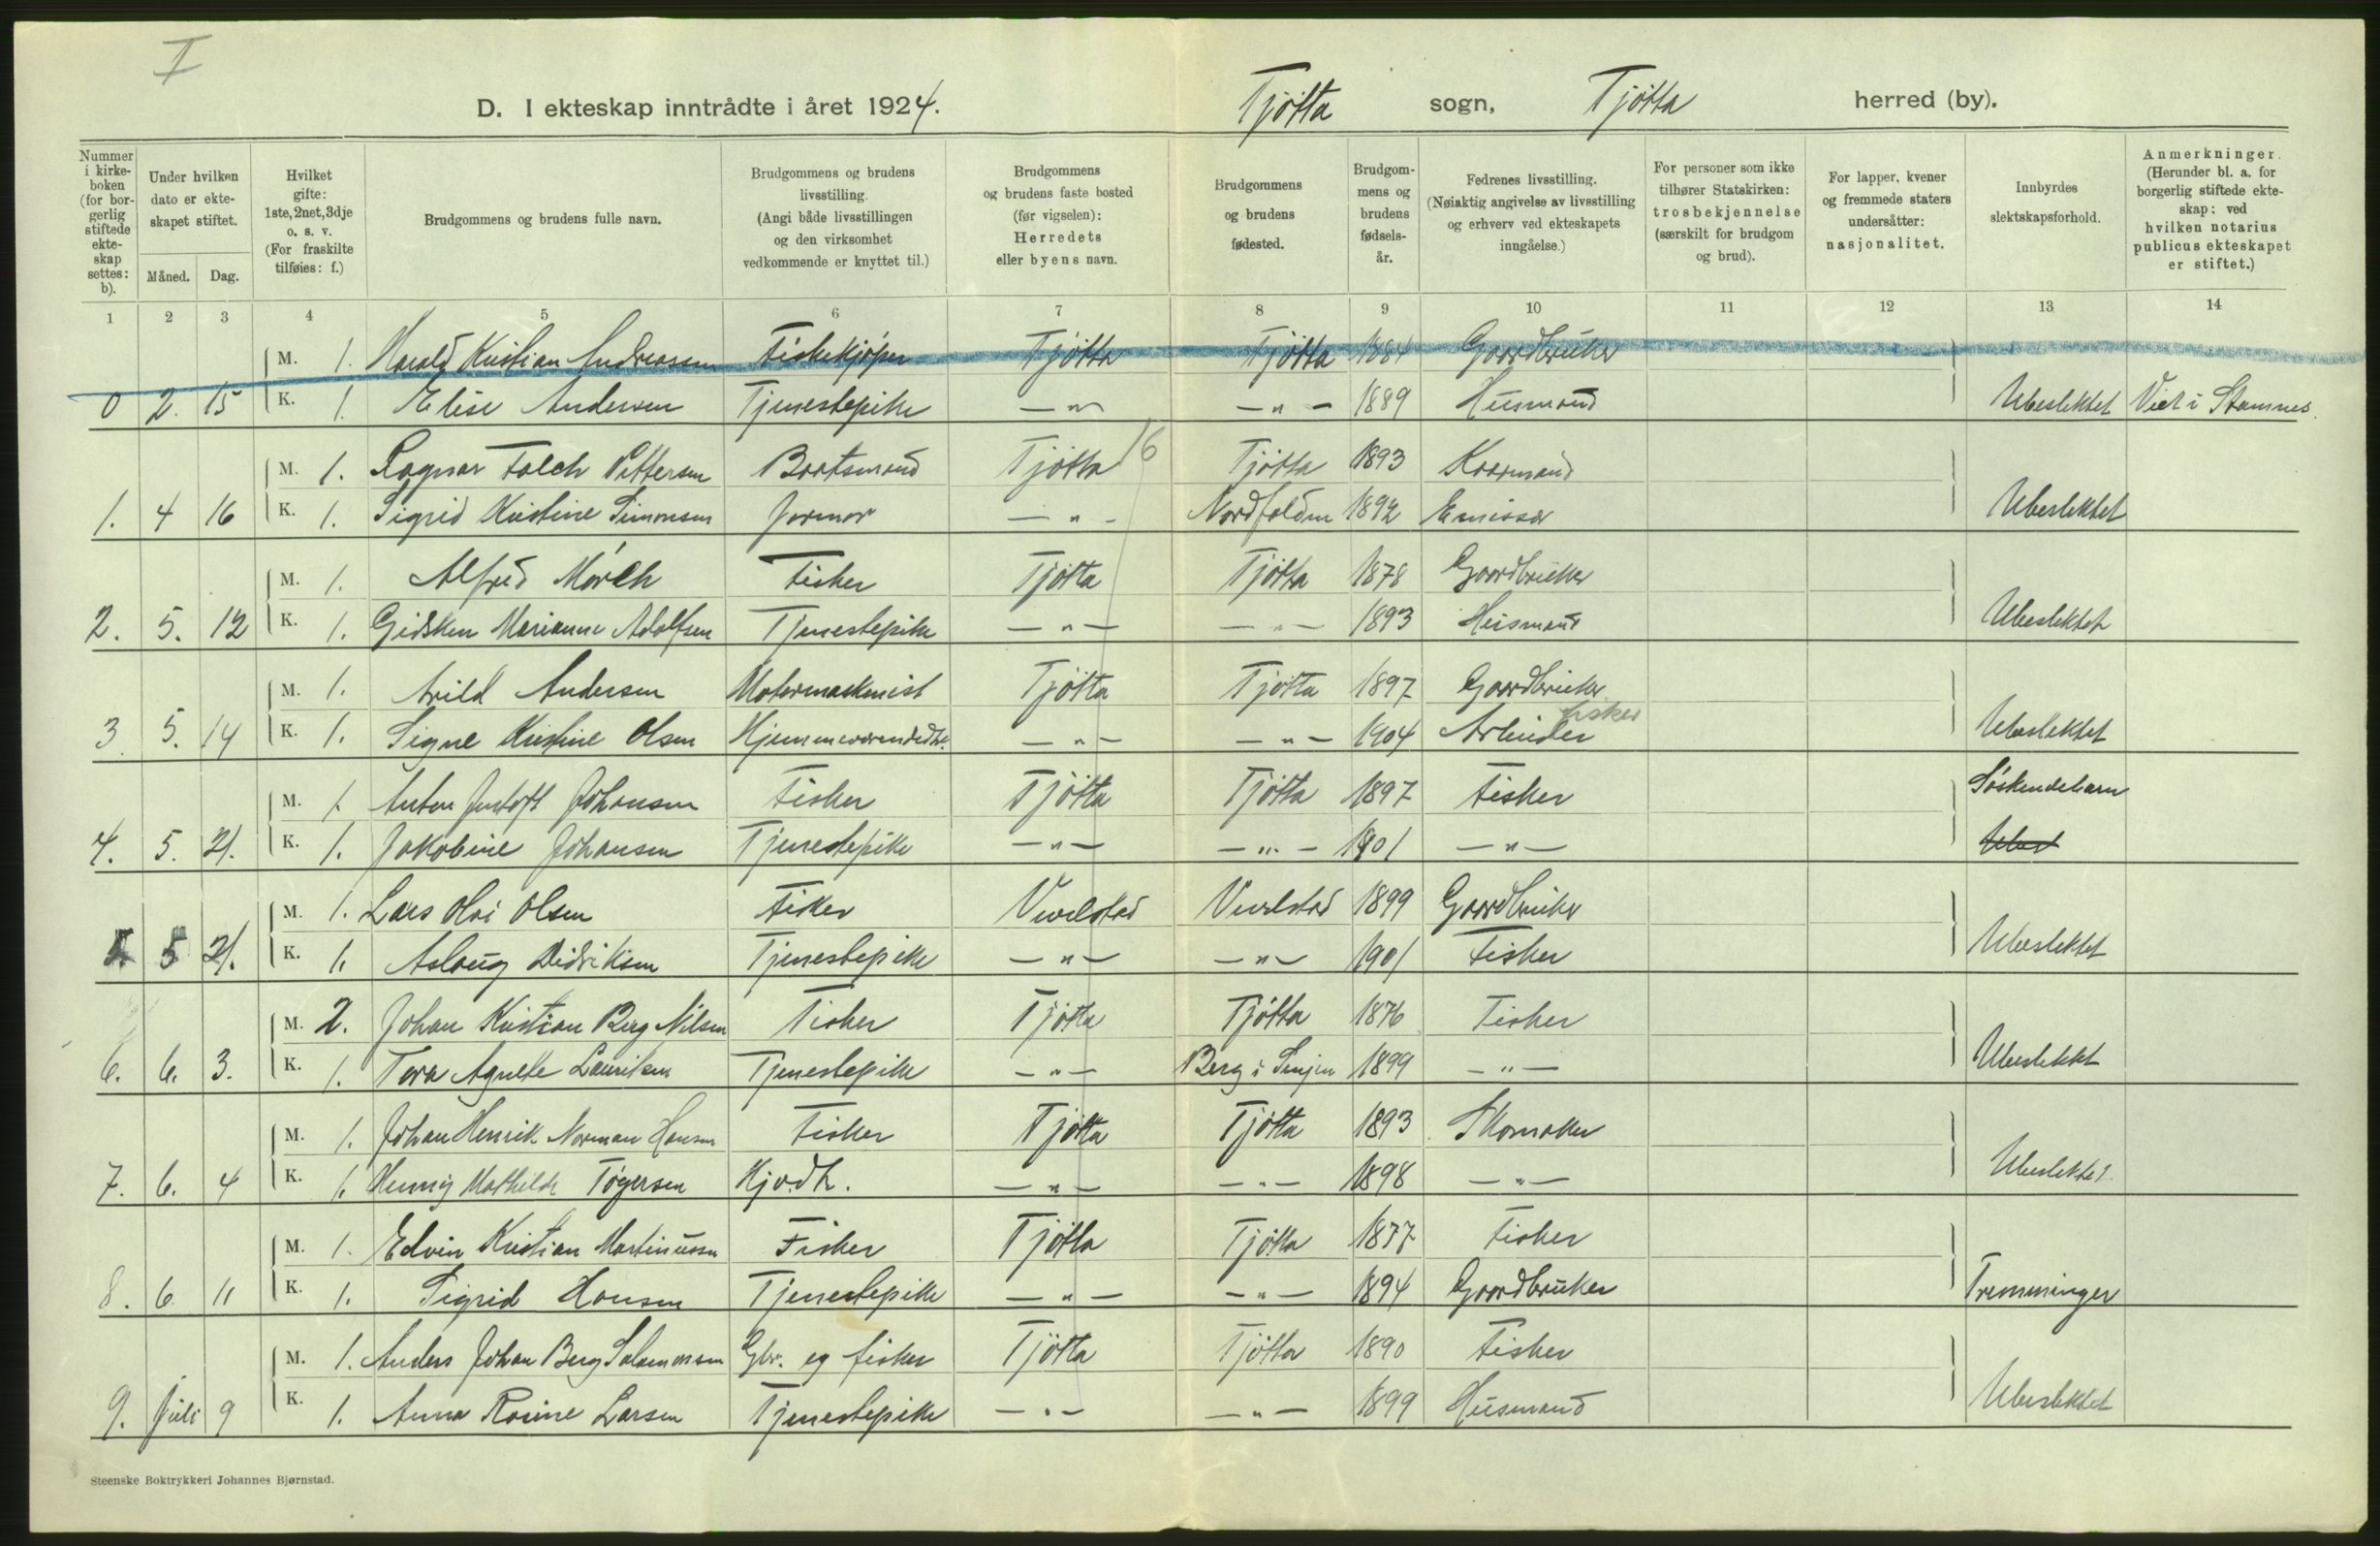 I
D. I ekteskap inntrådte i året 1924. Tjötta sogn, Tjötta herred (by).
Nummer i kirkeboken (for borgerlig stiftede ekteskap settes: b).
Under hvilken dato er ekteskapet stiftet.
Måned. Dag.
Hvilket gifte: 1ste, 2net, 3dje o. s. v. (For fraskilte tilføies: f.)
Brudgommens og brudens fulle navn.
Brudgommens og brudens livsstilling. (Angi både livsstillingen og den virksomhet vedkommende er knyttet til.)
Brudgommens og brudens faste bosted (før vigselen): Herredets eller byens navn.
Brudgommens og brudens fødested.
Brudgommens og brudens fødselsår.
Fedrenes livsstilling. (Nøiaktig angivelse av livsstilling og erhverv ved ekteskapets inngåelse.)
For personer som ikke tilhører Statskirken: trosbekjennelse (særskilt for brudgom og brud).
For lapper, kvener og fremmede staters undersåtter: nasjonalitet.
Innbyrdes slektskapsforhold.
Anmerkninger. (Herunder bl. a. for borgerlig stiftede ekteskap: ved hvilken notarius publicus ekteskapet er stiftet.)
1 2 3 4 5 6 7 8 9 10 11 12 13 14
M. 1. Harald Kristian Andreassen Fiskekjøper Tjötta Tjötta 1884 Gaardbruker
0 2. 15 K. 1. Elise Andersen Tjenestepike — " — — " — 1889 Husmand Ubeslektet Viet i Stamnes.
M. 1. Ragnar Falch Pettersen Baatsmand Tjötta 16 Tjötta 1893 Kaarmand
1. 4 16 K. 1. Sigrid Kristine Simonsen Jormor — " — Nordfolden 1892 Emissær Ubeslektet
M. 1. Alfred Mörch Fisker Tjötta Tjötta 1878 Gaardbruker
2. 5. 12 K. 1. Gidsken Marianne Adolfsen Tjenestepike — " — — " — 1893 Husmand Ubeslektet
M. 1. Arild Andersen Motormaskinist Tjötta Tjötta 1897 Gaardbruker
3 5. 14 K. 1. Signe Kristine Olsen Hjemmeværendedtr. — " — — " — 1904 Arbeider fisker Ubeslektet
M. 1 Anton Johansen Fisker Tjötta Tjötta 1897 Fisker Söskendebarn
4. 5. 21. K. 1. Jakobine Johansen Tjenestepike — " — — " — 1901 — " — Ubesl
M. 1. Lars Olai Olsen Fisker Vevelstad Vevelstad 1899 Gaardbruker
5. 5 21. K. 1. Aslaug Didriksen Tjenestepike — " — — " — 1901 Fisker Ubeslektet
M. 2. Johan Kristian Berg Nilsen Fisker Tjötta Tjötta 1876 Fisker
6. 6. 3. K. 1. Tora Agnete Lauritsen Tjenestepike — " — Berg i Senjen 1899 — " — Ubeslektet
M. 1. Johan Henrik Norman Hansen Fisker Tjötta Tjötta 1893 Skomaker
7. 6. 4 K. 1. Henny Mathilde Tögersen Hjv.dtr. — " — — " — 1898 — " — Ubeslektet
M. 1. Edvin Kristian Martinussen Fisker Tjötta Tjötta 1877 Fisker
8. 6 11 K. 1. Sigrid Hansen Tjenestepike — " — — " — 1894 Gaardbruker Tremminger
M. 1. Anders Johan Berg Salamonsen Gbr. og fisker Tjötta Tjötta 1890 Fisker
9. Juli 9 K. 1. Anna Rosine Larsen Tjenestepike — " — — " — 1899 Husmand Ubeslektet
Steenske Boktrykkeri Johannes Bjørnstad.